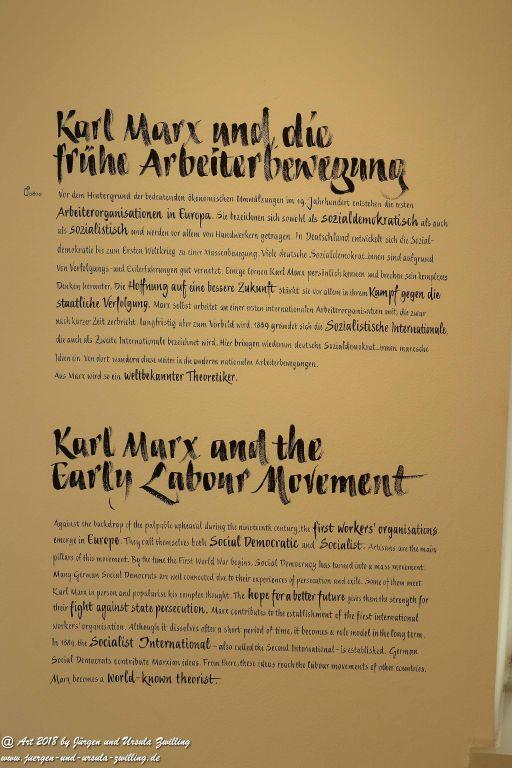 Karl Marx und die
frühe Arbeiterbewegung
Vor dem Hintergrund der bedeutenden ökonomischen Umwälzungen im 19. Jahrhundert entstehen die ersten
Arbeiterorganisationen in Europa. Sie bezeichnen sich sowohl als sozialdemokratisch als auch
als sozialistisch und werden vor allem von Handwerkern getragen. In Deutschland entwickelt sich die Sozial-
demokratie bis zum Ersten Weltkrieg zu einer Massenbewegung. Viele deutsche Sozialdemokrat_innen sind aufgrund
von Verfolgungs- und Exilerfahrungen gut vernetzt. Einige lernen Karl Marx persönlich kennen und brechen sein komplexes
Denken herunter. Die Hoffnung auf eine bessere Zukunft stärkt sie vor allem in ihrem Kampf gegen die
staatliche Verfolgung. Marx selbst arbeitet an einer ersten internationalen Arbeiterorganisation mit, die zwar
nach kurzer Zeit zerbricht, langfristig aber zum Vorbild wird. 1889 gründet sich die Sozialistische Internationale,
die auch als Zweite Internationale bezeichnet wird. Hier bringen wiederum deutsche Sozialdemokrat_innen marxsche
Ideen ein. Von dort wandern diese weiter in die anderen nationalen Arbeiterbewegungen.
Aus Marx wird so ein weltbekannter Theoretiker.
Karl Marx and the
Early Labour Movement
Against the backdrop of the palpable upheaval during the nineteenth century, the first workers' organisations
emerge in Europe. They call themselves both Social Democratic and Socialist. Artisans are the main
pillars of this movement. By the time the First World War begins, Social Democracy has turned into a mass movement.
Many German Social Democrats are well connected due to their experiences of persecution and exile. Some of them meet
Karl Marx in person and popularise his complex thought. The hope for a better future gives them the strength for
their fight against state persecution. Marx contributes to the establishment of the first international
workers' organisation. Although it dissolves after a short period of time, it becomes a role model in the long term.
In 1889, the Socialist International – also called the Second International – is established. German
Social Democrats contribute Marxian ideas. From there, these ideas reach the labour movements of other countries.
Marx becomes a world-known theorist.
@ Art 2018 by Jürgen und Ursula Zwilling
www.juergen-und-ursula-zwilling.de